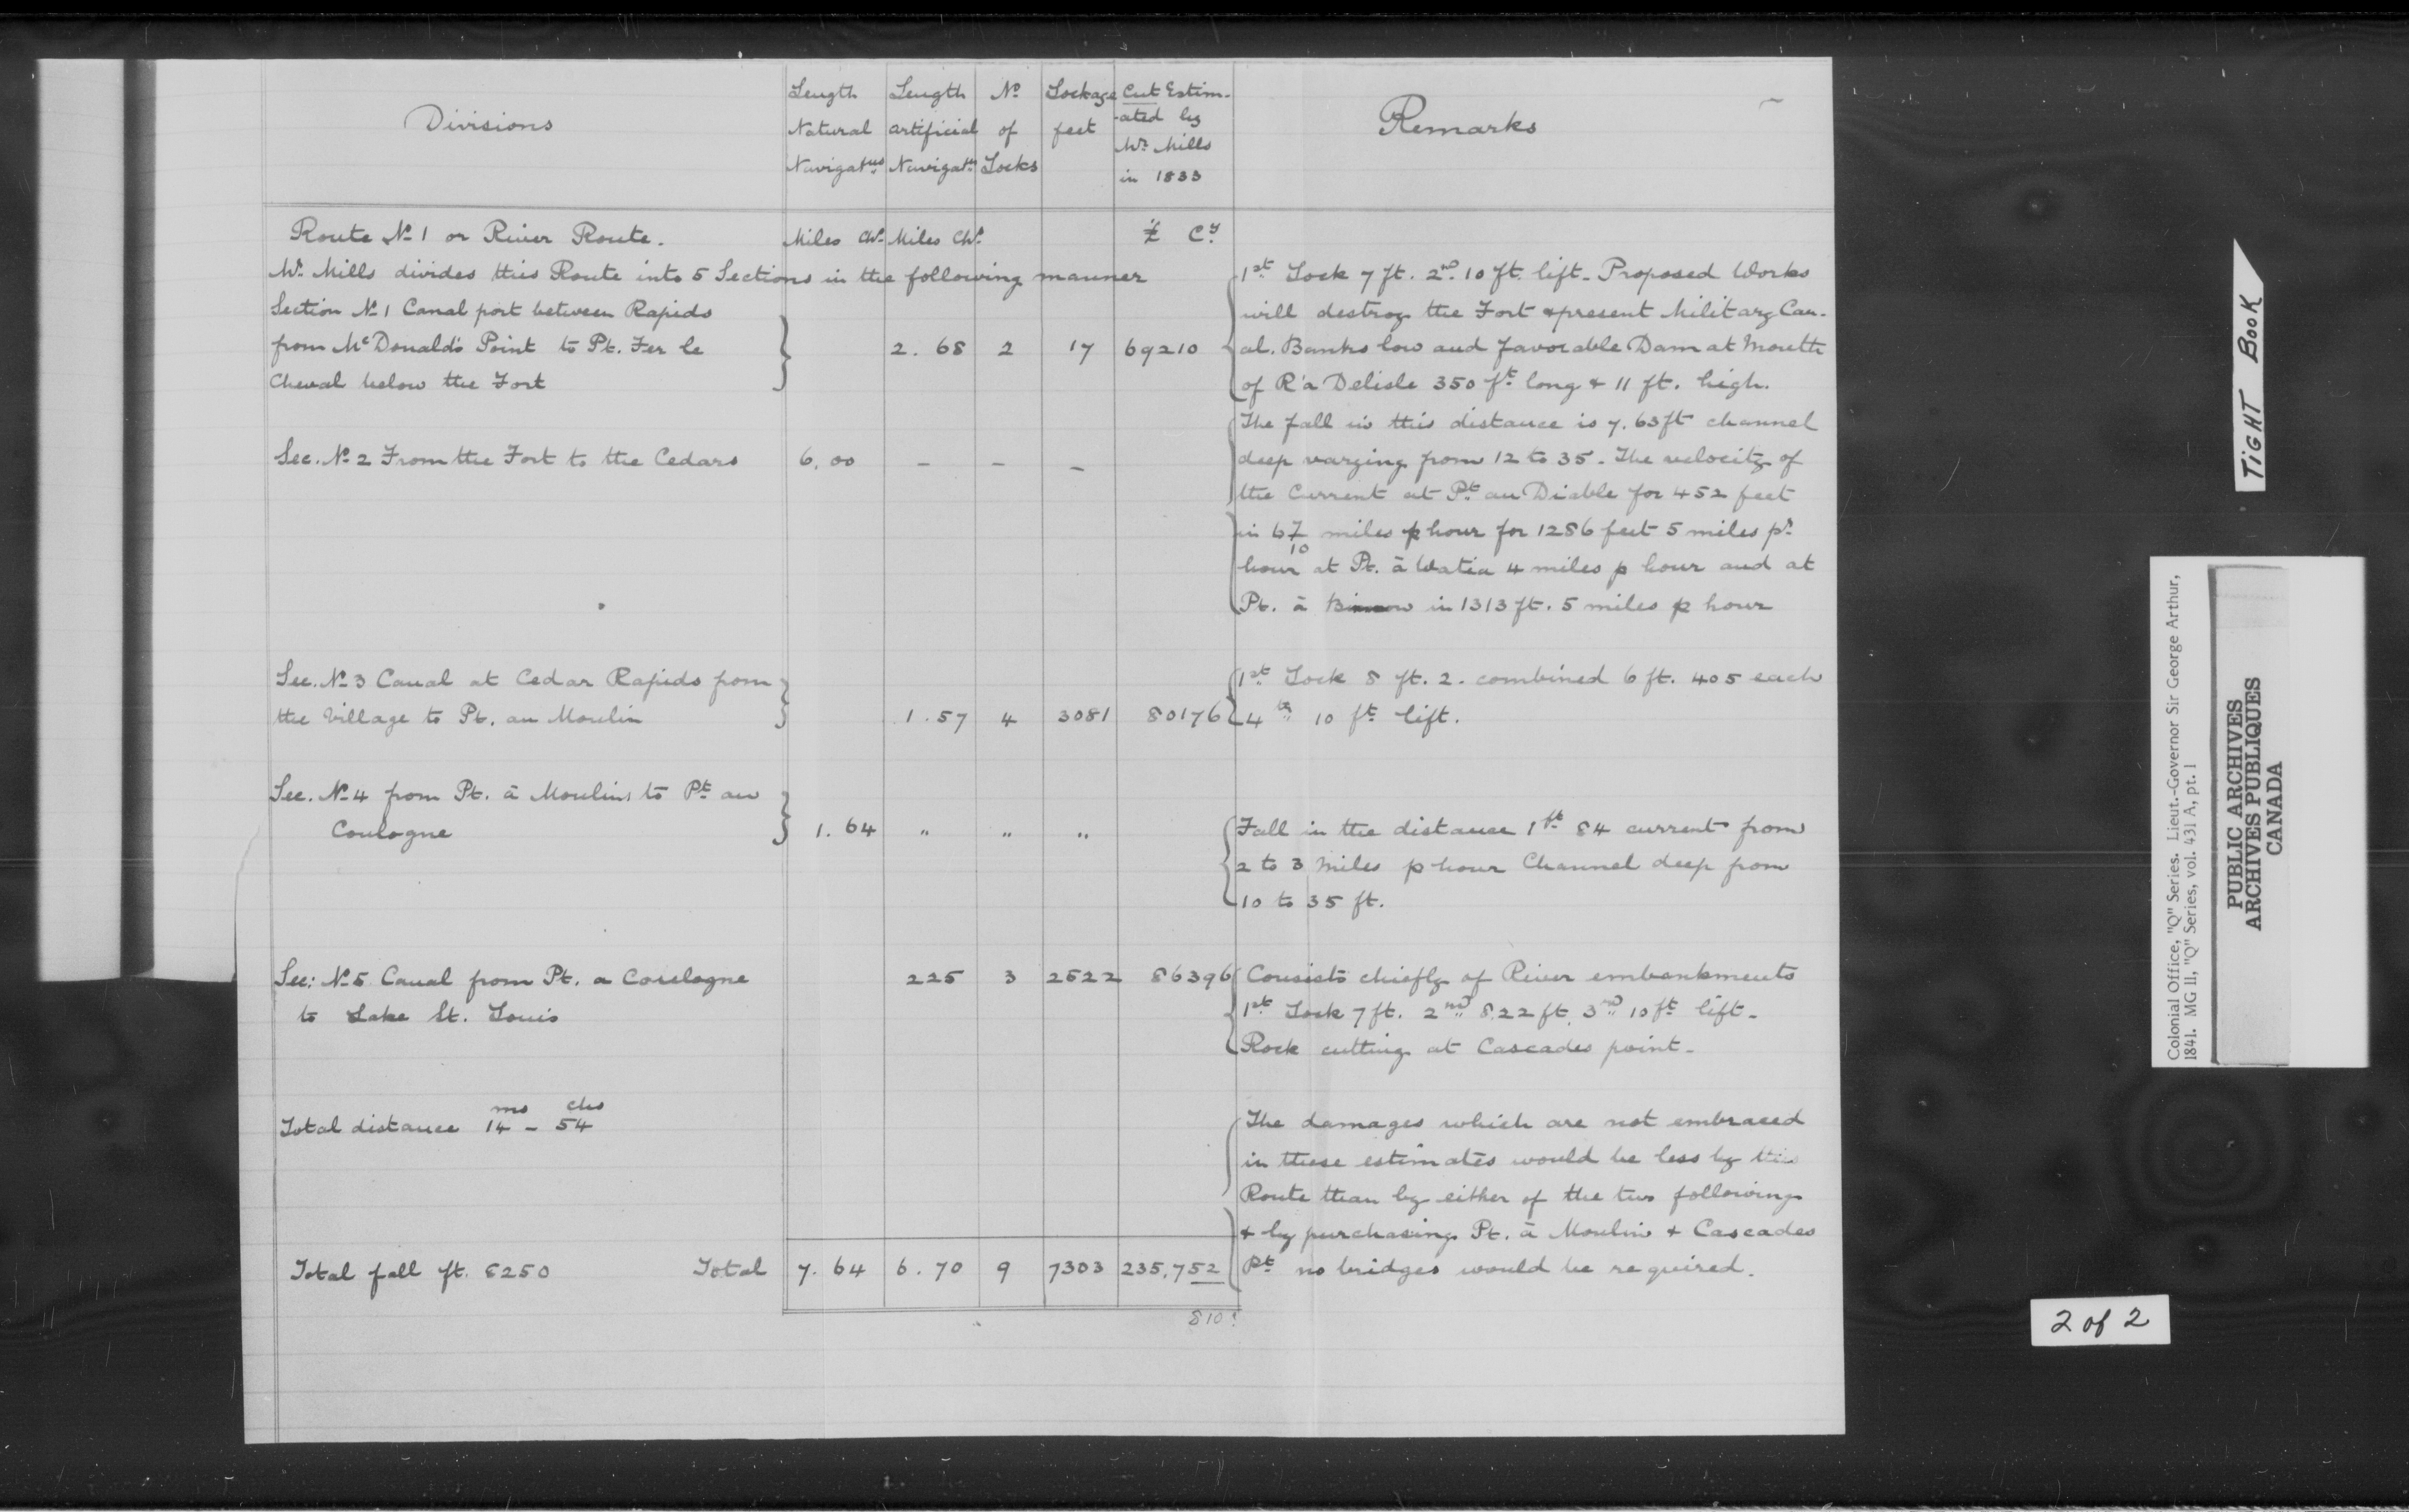 Divisions
Length Natural Navigatns
Length artificial Navigatn
No of Locks
Lockage feet
Cut Estim-
-ated by
Mr. Mills
in 1833
Remarks
Route No 1 or River Route. Miles Chs Miles Chs £ Cy
Mr. Mills divides this Route into 5 Sections in the following manner
Section No 1 Canal port between Rapids
from McDonald's Point to Pt. Fer le 2. 68 2 17 69210
Cheval below the Fort
1st Lock 7 ft. 2nd. 10 ft. lift - Proposed Works
will destroy the Fort & present Military Can-
al. Banks low and favorable Dam at Mouth
of R'a Delisle 350 ft long & 11 ft. high.
Sec. No 2 From the Fort to the Cedars 6. 00 - - -
The fall in this distance is 7.63 ft channel
deep varying from 12 to 35 - The velocity of
the Current at Pt au Diable for 452 feet
in 6 7/10 miles p hour for 1286 feet 5 miles pr
hour at Pt. à 4 miles p hour and at
Pt. à in 1313 ft. 5 miles p hour
Sec. No 3 Canal at Cedar Rapids from
the Village to Pt. au Moulin 1. 57 4 3081 80176
1st Lock 8 ft. 2. combined 6 ft. 405 each
4th 10 ft lift.
Sec. No 4 from Pt. à Moulins to Pt au
Coulogne 1. 64 " " "
Fall in the distance 1 ft 84 current from
2 to 3 Miles p hour Channel deep from
10 to 35 ft.
Sec: No 5 Canal from Pt. a Coulogne 225 3 2522 86396
to Lake St. Louis
Consists chiefly of River embankments
1st Lock 7 ft. 2nd 8.22 ft. 3rd 10 ft lift -
Rock cutting at Cascades point -
ms chs
Total distance 14 - 54
The damages which are not embraced
in these estimates would be less by this
Route than by either of the two following
& by purchasing Pt. à Moulin & Cascades
Pt no bridges would be required.
Total fall ft. 8250 Total 7. 64 6. 70 9 7303 235,752
810?
TIGHT BOOK
Colonial Office, "Q" Series. Lieut.-Governor Sir George Arthur,
1841. MG II, "Q" Series, vol. 431 A, pt. 1
PUBLIC ARCHIVES
ARCHIVES PUBLIQUES
CANADA
2 of 2